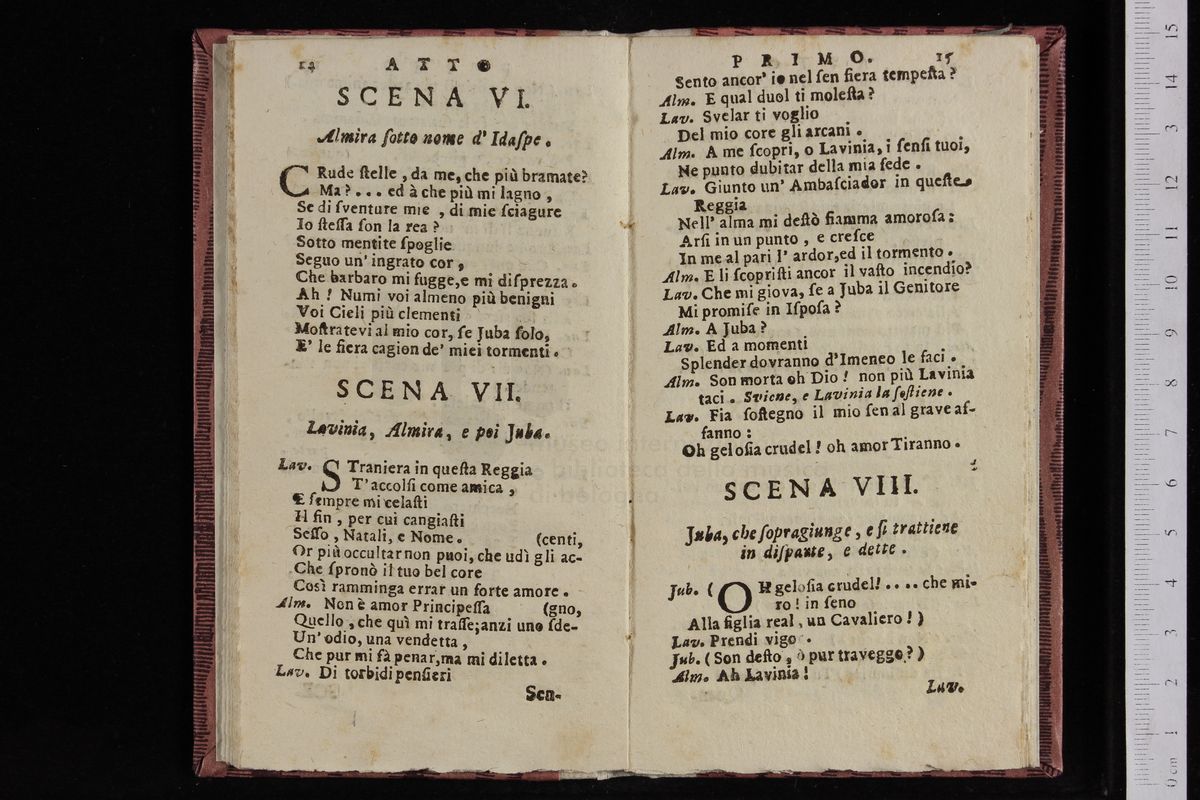 14 ATTO
SCENA VI.
Almira ſotto nome d' Idaſpe.
CRude ſtelle, da me, che più bramate?
Ma?... ed à che più mi lagno,
Se di ſventure mie, di mie ſciagure
Io ſteſſa ſon la rea?
Sotto mentite ſpoglie
Seguo un' ingrato cor,
Che barbaro mi fugge, e mi diſprezza.
Ah! Numi voi almeno più benigni
Voi Cieli più clementi
Moſtratevi al mio cor, ſe Juba ſolo,
E' le fiera cagion de' miei tormenti.
SCENA VII.
Lavinia, Almira, e poi Juba.
Lav. STraniera in queſta Reggia
T'accolſi come amica,
E ſempre mi celaſti
Il fin, per cui cangiaſti
Seſſo, Natali, e Nome. (centi,
Or più occultar non puoi, che udì gli ac-
Che ſpronò il tuo bel core
Così ramminga errar un forte amore.
Alm. Non è amor Principeſſa (gno,
Quello, che quì mi traſſe; anzi uno ſde-
Un' odio, una vendetta,
Che pur mi fà penar, ma mi diletta.
Lav. Di torbidi penſieri
Sen-
PRIMO. 15
Sento ancor' io nel ſen fiera tempeſta?
Alm. E qual duol ti moleſta?
Lav. Svelar ti voglio
Del mio core gli arcani.
Alm. A me ſcopri, o Lavinia, i ſenſi tuoi,
Ne punto dubitar della mia fede.
Lav. Giunto un' Ambaſciador in queſte
Reggia
Nell' alma mi deſtò fiamma amoroſa:
Arſi in un punto, e creſce
In me al pari l' ardor, ed il tormento.
Alm. E li ſcopriſti ancor il vaſto incendio?
Lav. Che mi giova, ſe a Juba il Genitore
Mi promiſe in Iſpoſa?
Alm. A Juba?
Lav. Ed a momenti
Splender dovranno d'Imeneo le faci.
Alm. Son morta oh Dio! non più Lavinia
taci. Sviene, e Lavinia la ſoſtiene.
Lav. Fia ſoſtegno il mio ſen al grave af-
fanno:
Oh geloſia crudel! oh amor Tiranno.
SCENA VIII.
Juba, che ſopragiunge, e ſi trattiene
in diſparte, e dette.
Jub. (OH geloſia crudel!.... che mi-
ro! in ſeno
Alla figlia real, un Cavaliero!)
Lav. Prendi vigor.
Jub. (Son deſto, ò pur traveggo?)
Alm. Ah Lavinia!
Lav.
museo internazionale
e biblioteca della musica
di bologna
15
14
13
12
11
10
9
8
7
6
5
4
3
2
1
0 cm